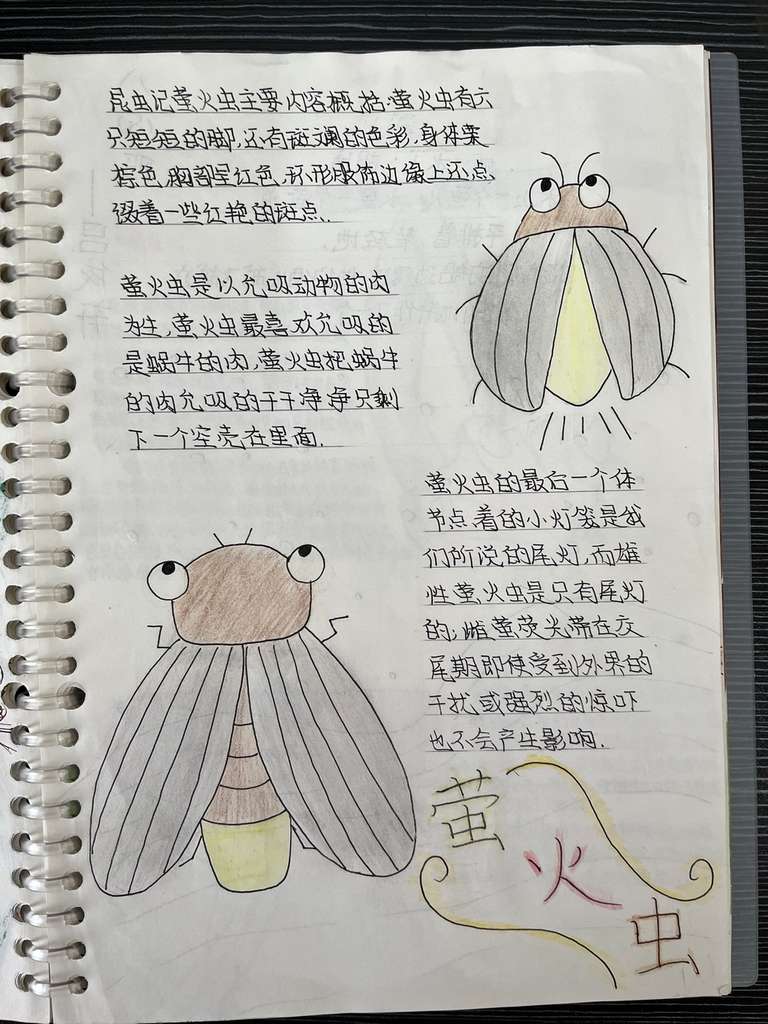 昆虫记萤火虫主要内容概括:萤火虫有六
只短短的脚,还有斑斓的色彩,身体呈
棕色,胸部呈红色,环形服饰边缘上还点
缀着一些红艳的斑点..
萤火虫是以允吸动物的肉
为生,萤火虫最喜欢允吸的
是蜗牛的肉,萤火虫把蜗牛
的肉允吸的干干净净只剩
下一个空壳在里面.
萤火虫的最后一个体
节点着的小灯笼是我
们所说的尾灯,而雄
性萤火虫是只有尾灯
的,雌萤荧光带在交
尾期即使受到外界的
干扰或强烈的惊吓
也不会产生影响.
萤
火
虫